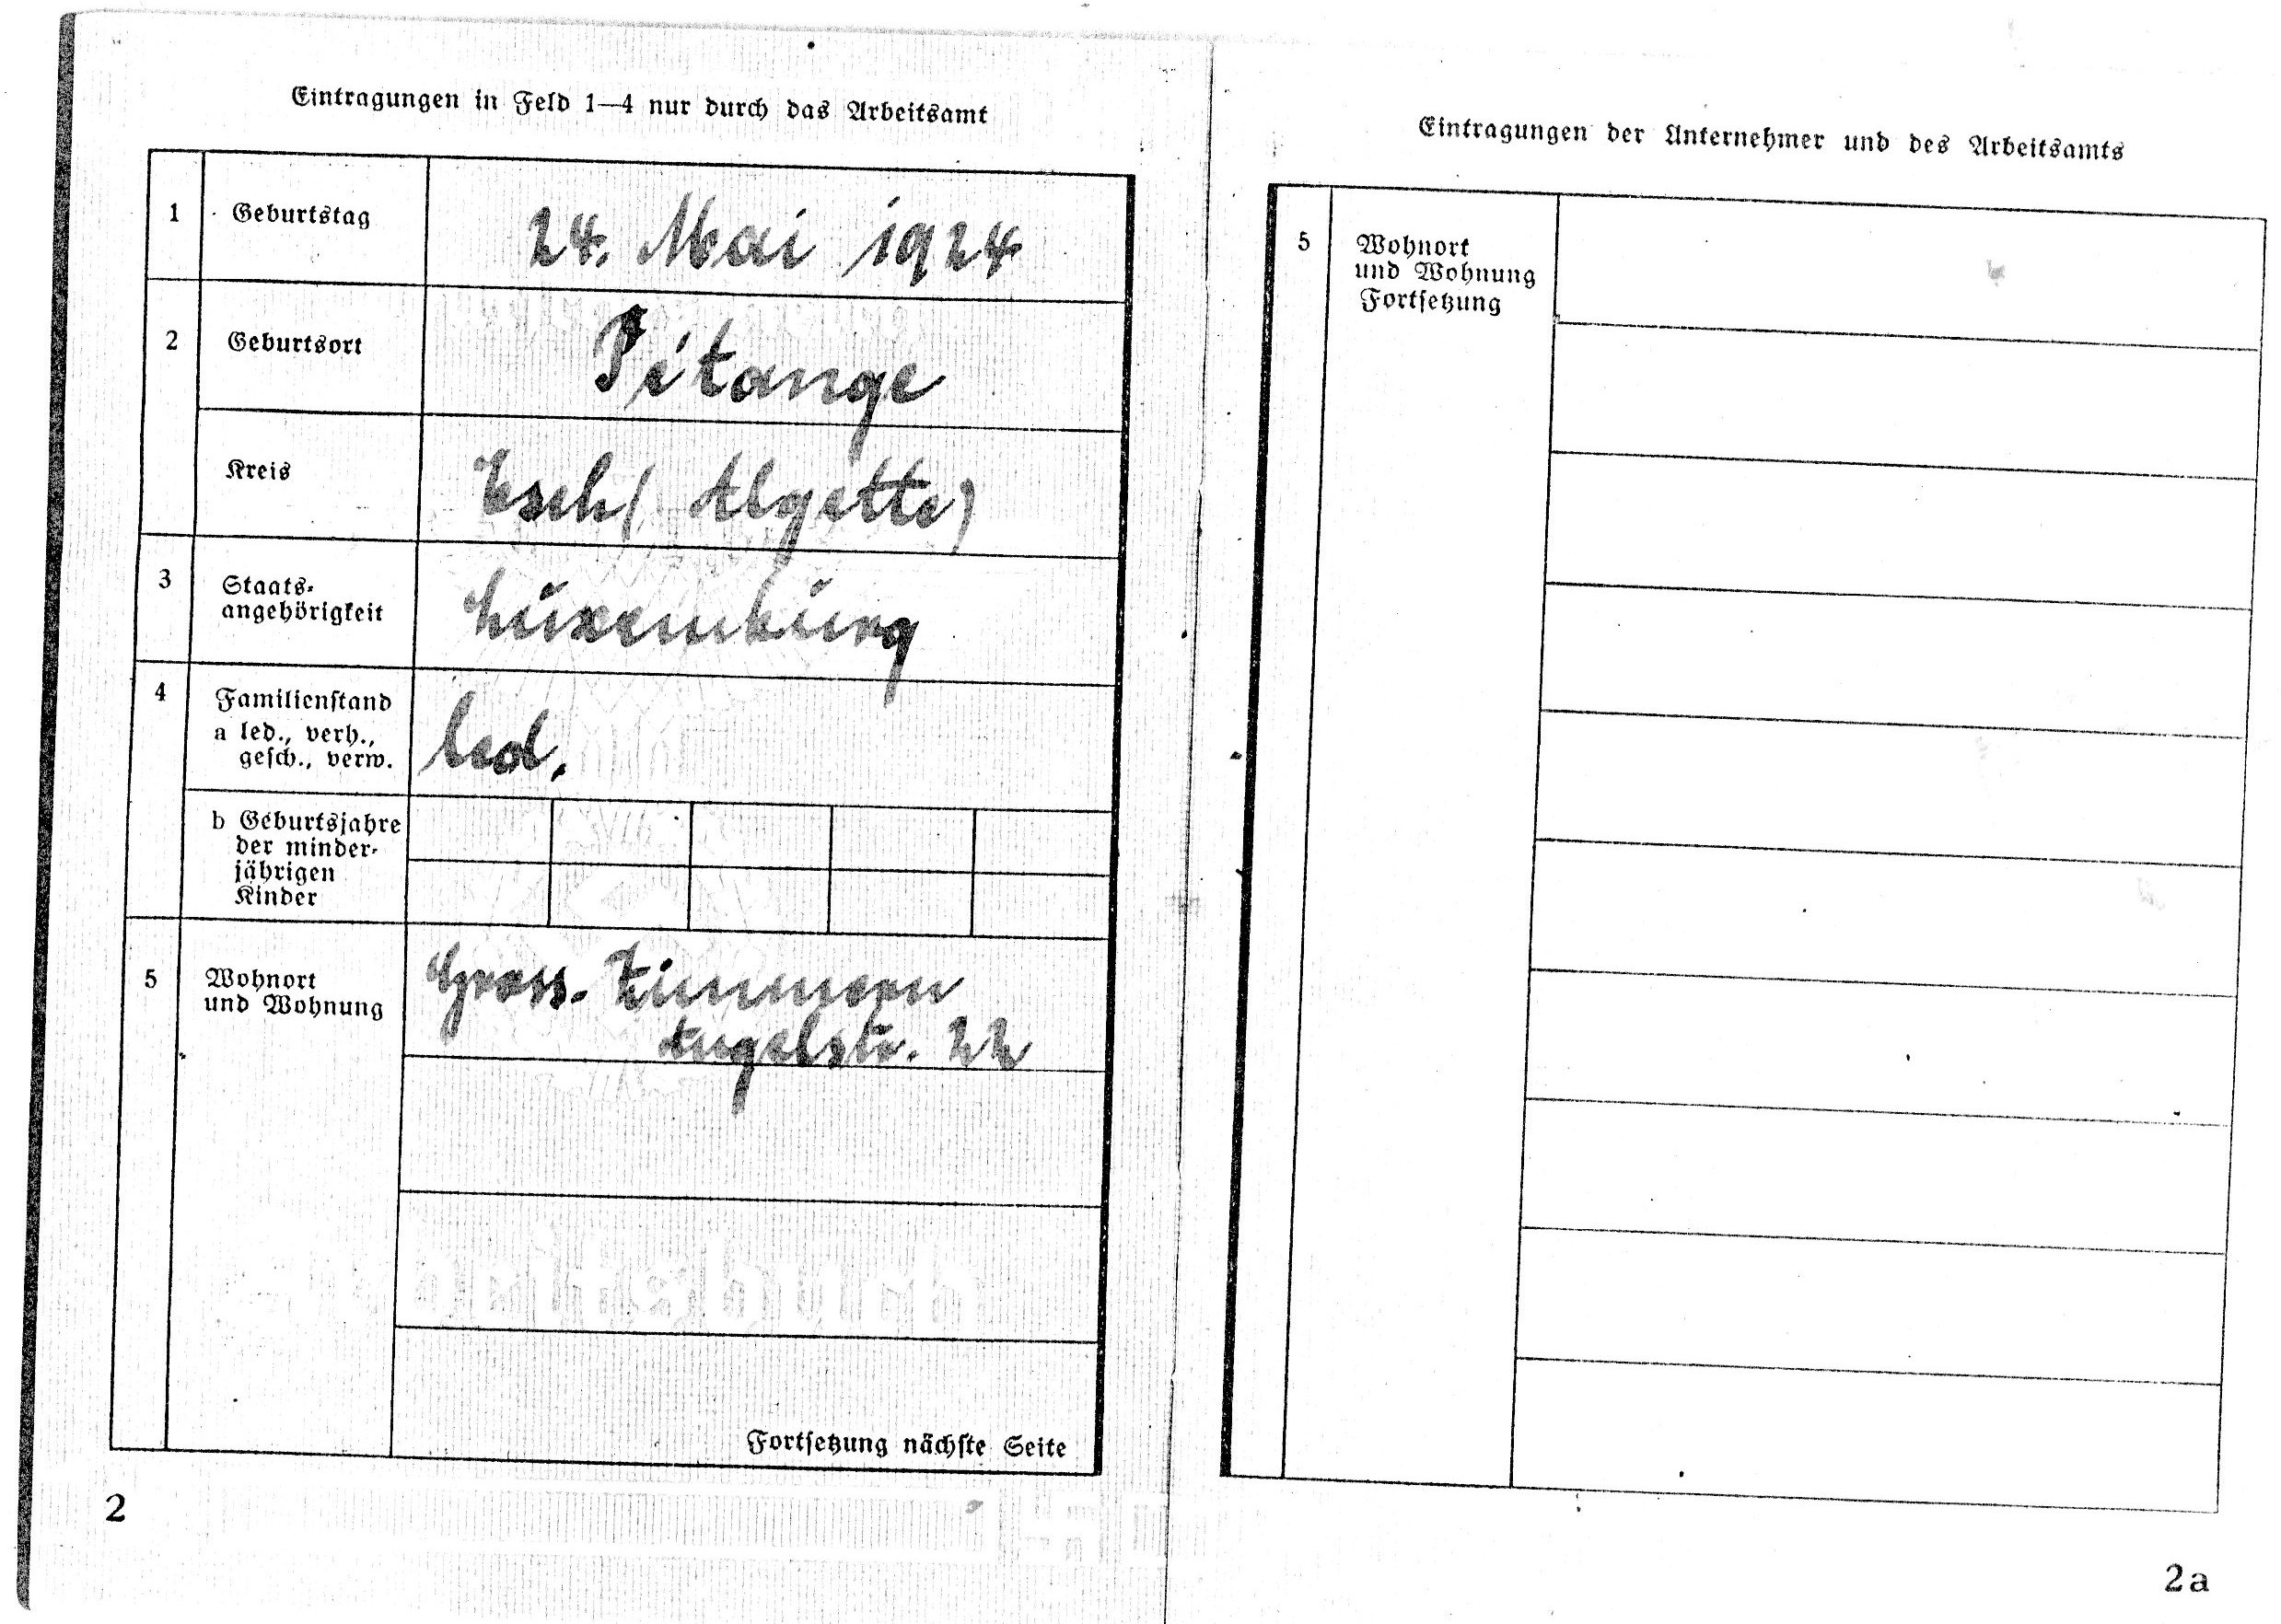 Eintragungen in Feld 1—4 nur durch das Arbeitsamt
1 Geburtstag 24. Mai 1924
2 Geburtsort Pétange
Kreis Esch( Algette)
3 Staats-
angehörigkeit Luxemburg
4 Familienstand
a led., verh.,
gesch., verw. led.
b Geburtsjahre
der minder-
jährigen
Kinder
5 Wohnort
und Wohnung Gross-Zimmern
Angelstr. 22
Fortsetzung nächste Seite
2
Eintragungen der Unternehmer und des Arbeitsamts
5 Wohnort
und Wohnung
Fortsetzung
2a